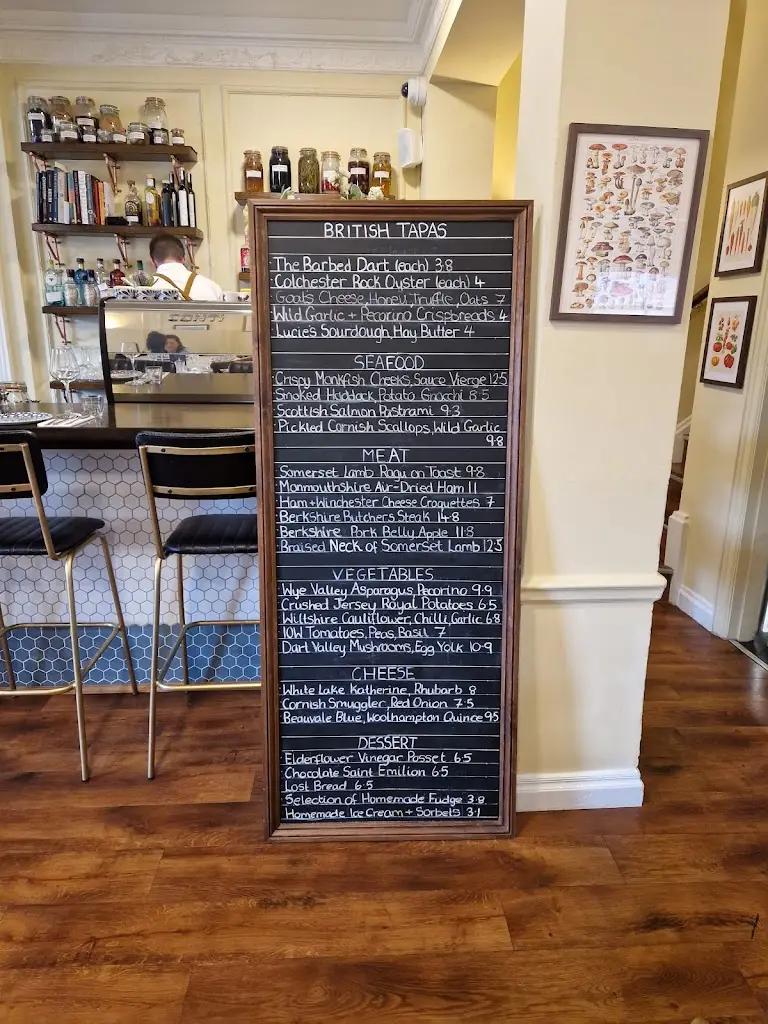 BRITISH TAPAS
The Barbed Dart (each) 3.8
Colchester Rock Oyster (each) 4
Goats Cheese, Honey, Truffle, Oats 7
Wild Garlic + Pecorino Crispbreads 4
Lucie's Sourdough, Hay Butter 4
SEAFOOD
Crispy Monkfish Cheeks, Sauce Vierge 12.5
Smoked Haddock, Potato Gnocchi 8.5
Scottish Salmon Pastrami 9.3
Pickled Cornish Scallops, Wild Garlic
9.8
MEAT
Somerset Lamb Ragu on Toast 9.8
Monmouthshire Air-Dried Ham 11
Ham + Winchester Cheese Croquettes 7
Berkshire Butchers Steak 14.8
Berkshire Pork Belly, Apple 11.8
Braised Neck of Somerset Lamb 12.5
VEGETABLES
Wye Valley Asparagus, Pecorino 9.9
Crushed Jersey Royal Potatoes 6.5
Wiltshire Cauliflower, Chilli, Garlic 6.8
IOW Tomatoes, Peas, Basil 7
Dart Valley Mushrooms, Egg Yolk 10.9
CHEESE
White Lake Katherine, Rhubarb 8
Cornish Smuggler, Red Onion 7.5
Beauvale Blue, Woolhampton Quince 9.5
DESSERT
Elderflower Vinegar Posset 6.5
Chocolate Saint Emilion 6.5
Lost Bread 6.5
Selection of Homemade Fudge 3.8
Homemade Ice Cream + Sorbets 3.1